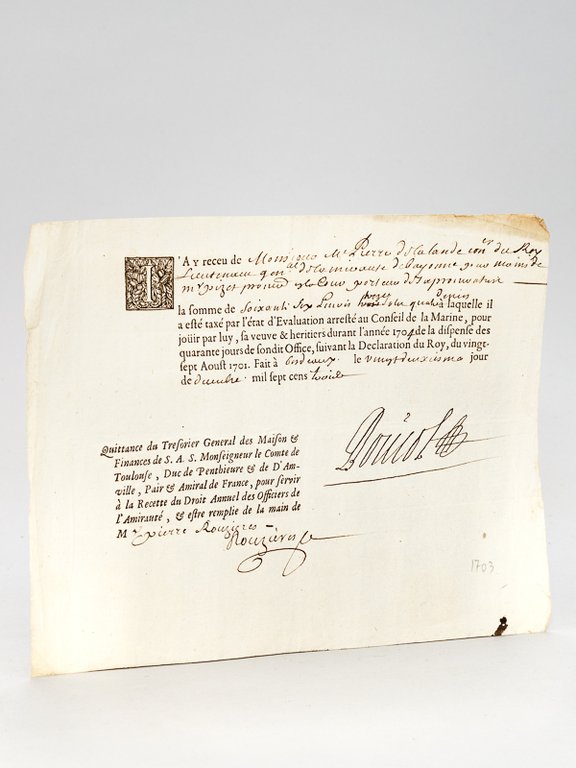 I'AY receu de Monsieur Me Pierre de Lalande coner du Roy
Lieutenant genal de lamirauté de bayonne par mains de
la somme de Soixante Six Livres treize sols quatre deniers à laquelle il
a esté taxé par l'état d'Evaluation arresté au Conseil de la Marine, pour
joüir par luy, sa veuve & heritiers durant l'année 1704 de la dispense des
quarante jours de sondit Office, suivant la Declaration du Roy, du vingt-
sept Aoust 1701. Fait à bordeaux le vingt deuxiesme jour
de decembre mil sept cens trois
Quittance du Tresorier General des Maison &
Finances de S. A. S. Monseigneur le Comte de
Toulouse, Duc de Penthieure & de D'Am-
ville, Pair & Amiral de France, pour servir
à la Recette du Droit Annuel des Officiers de
l'Amirauté, & estre remplie de la main de
M pierre Rouzieres
Rouzieres
1703